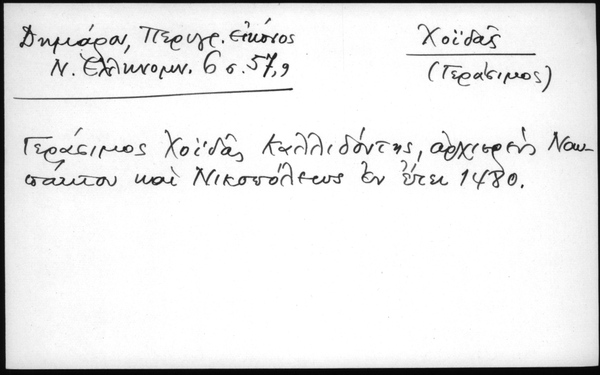 Δημάρα, Περιγρ. εἰκόνος
Ν. Ἑλληνομν. 6 σ. 57,9
Χοϊδᾶς
(Γεράσιμος)
Γεράσιμος Χοϊδᾶς Καλλιδόντης, ἀρχιερεὺς Ναυ-
πάκτου καὶ Νικοπόλεως ἐν ἔτει 1480.